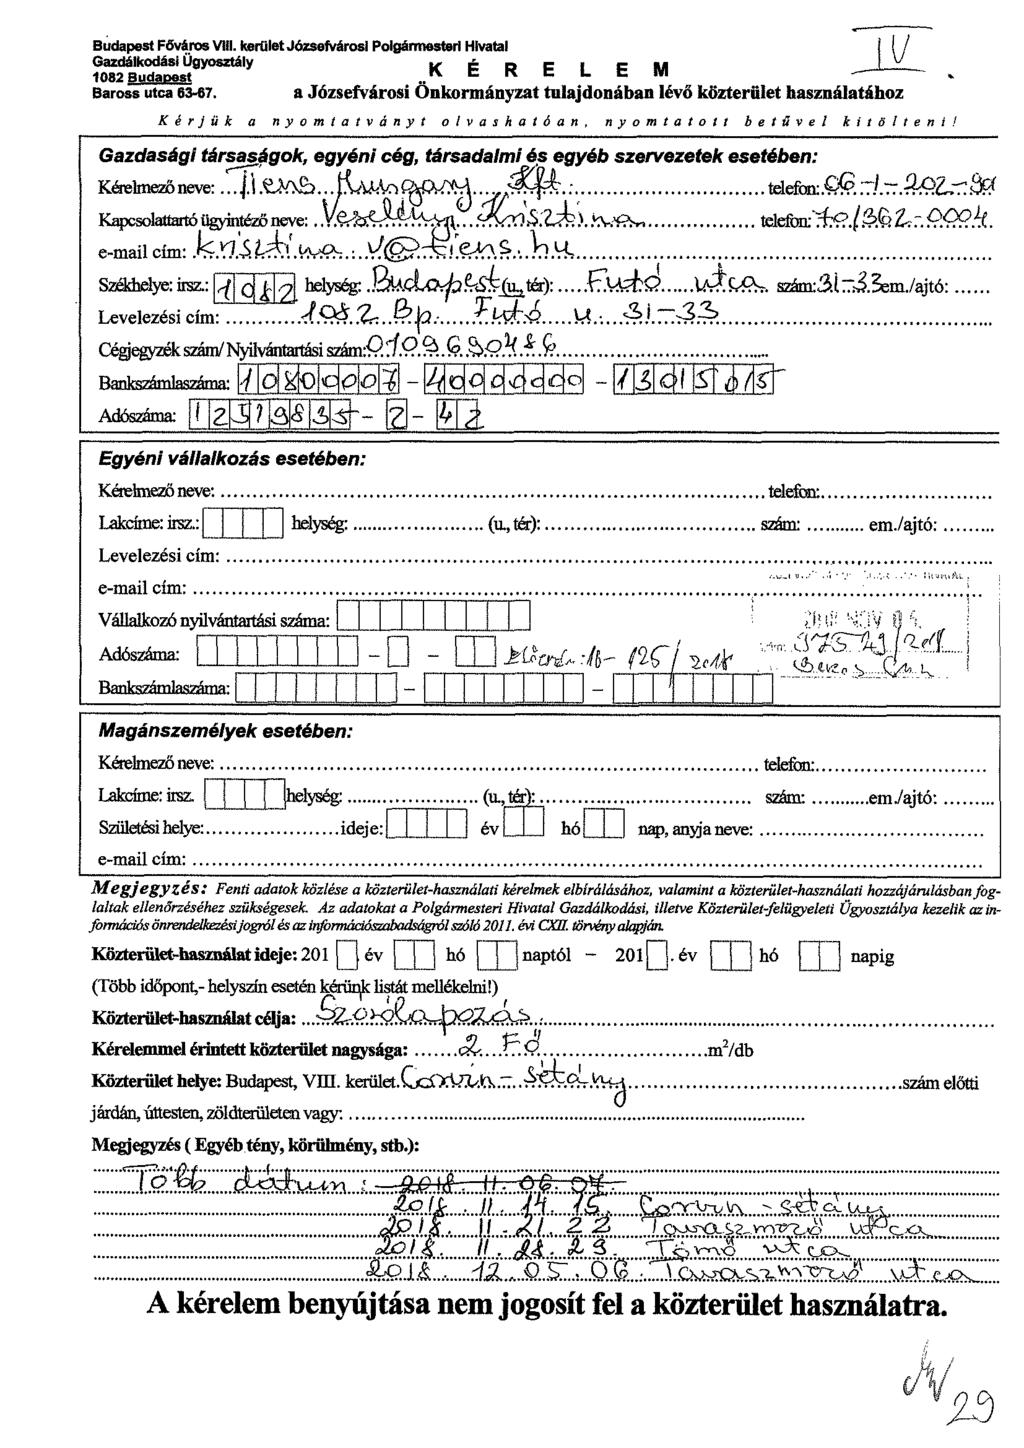 Budapest Főváros VIII. kerület Józsefvárosi Polgármesteri Hivatal
Gazdálkodási Ügyosztály
1082 Budapest
Baross utca 63-67.
IV
K É R E L E M
a Józsefvárosi Önkormányzat tulajdonában lévő közterület használatához
Kérjük a nyomtatványt olvashatóan, nyomtatott betűvel kitölteni!
Gazdasági társaságok, egyéni cég, társadalmi és egyéb szervezetek esetében:
Kérelmező neve: Tiens Hungary Kft. telefon: 06-1-202-
Kapcsolattartó ügyintéző neve: Krisztina telefon: 70/362-0004
e-mail cím: krisztina.v@tiens.hu
Székhelye: irsz.: 1082 helység: Budapest (u., tér): Futó utca szám: 31-33 em./ajtó:
Levelezési cím: 1082 Bp. Futó u. 31-33
Cégjegyzék szám/ Nyilvántartási szám: 0109690486
Bankszámlaszáma: 10800007 - 40000000 - 13015015
Adószáma: 12579835 - 2 - 42
Egyéni vállalkozás esetében:
Kérelmező neve: telefon:
Lakcíme: irsz.: helység: (u., tér): szám: em./ajtó:
Levelezési cím:
e-mail cím:
Vállalkozó nyilvántartási száma:
2018 NOV 05.
Adószáma: - - 16- 125/2018
Bankszámlaszáma: - -
Magánszemélyek esetében:
Kérelmező neve: telefon:
Lakcíme: irsz. helység: (u., tér): szám: em./ajtó:
Születési helye: ideje: év hó nap, anyja neve:
e-mail cím:
Megjegyzés: Fenti adatok közlése a közterület-használati kérelmek elbírálásához, valamint a közterület-használati hozzájárulásban fog-
laltak ellenőrzéséhez szükségesek. Az adatokat a Polgármesteri Hivatal Gazdálkodási, illetve Közterület-felügyeleti Ügyosztálya kezelik az in-
formációs önrendelkezési jogról és az információszabadságról szóló 2011. évi CXII. törvény alapján.
Közterület-használat ideje: 201 év hó naptól - 201 . év hó napig
(Több időpont,- helyszín esetén kérünk listát mellékelni!)
Közterület-használat célja: Szórólapozás
Kérelemmel érintett közterület nagysága: 2 Fő m²/db
Közterület helye: Budapest, VIII. kerület. Corvin - Sétány szám előtti
járdán, úttesten, zöldterületen vagy:
Megjegyzés ( Egyéb tény, körülmény, stb.):
Több dátum : 2018. 11. 06. 07
2018. 11. 14. 15. Corvin - sétány
2018. 11. 21. 22 Tavaszmező utca
2018. 11. 28. 29. Tömő utca
2018. 12. 05. 06. Tavaszmező utca
A kérelem benyújtása nem jogosít fel a közterület használatra.
29